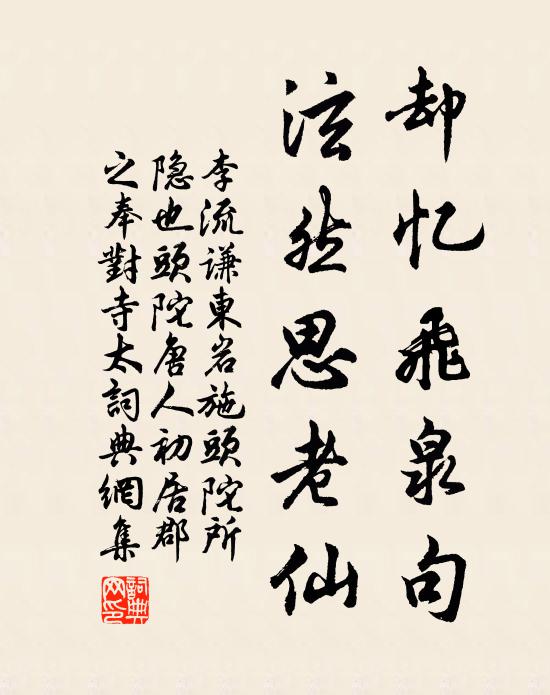 却忆飛泉句
泫然思老仙
李流谦東岩施頭陀所
隐也頭陀唐人初居郡
之奉對寺太詞典網集
詞典网印